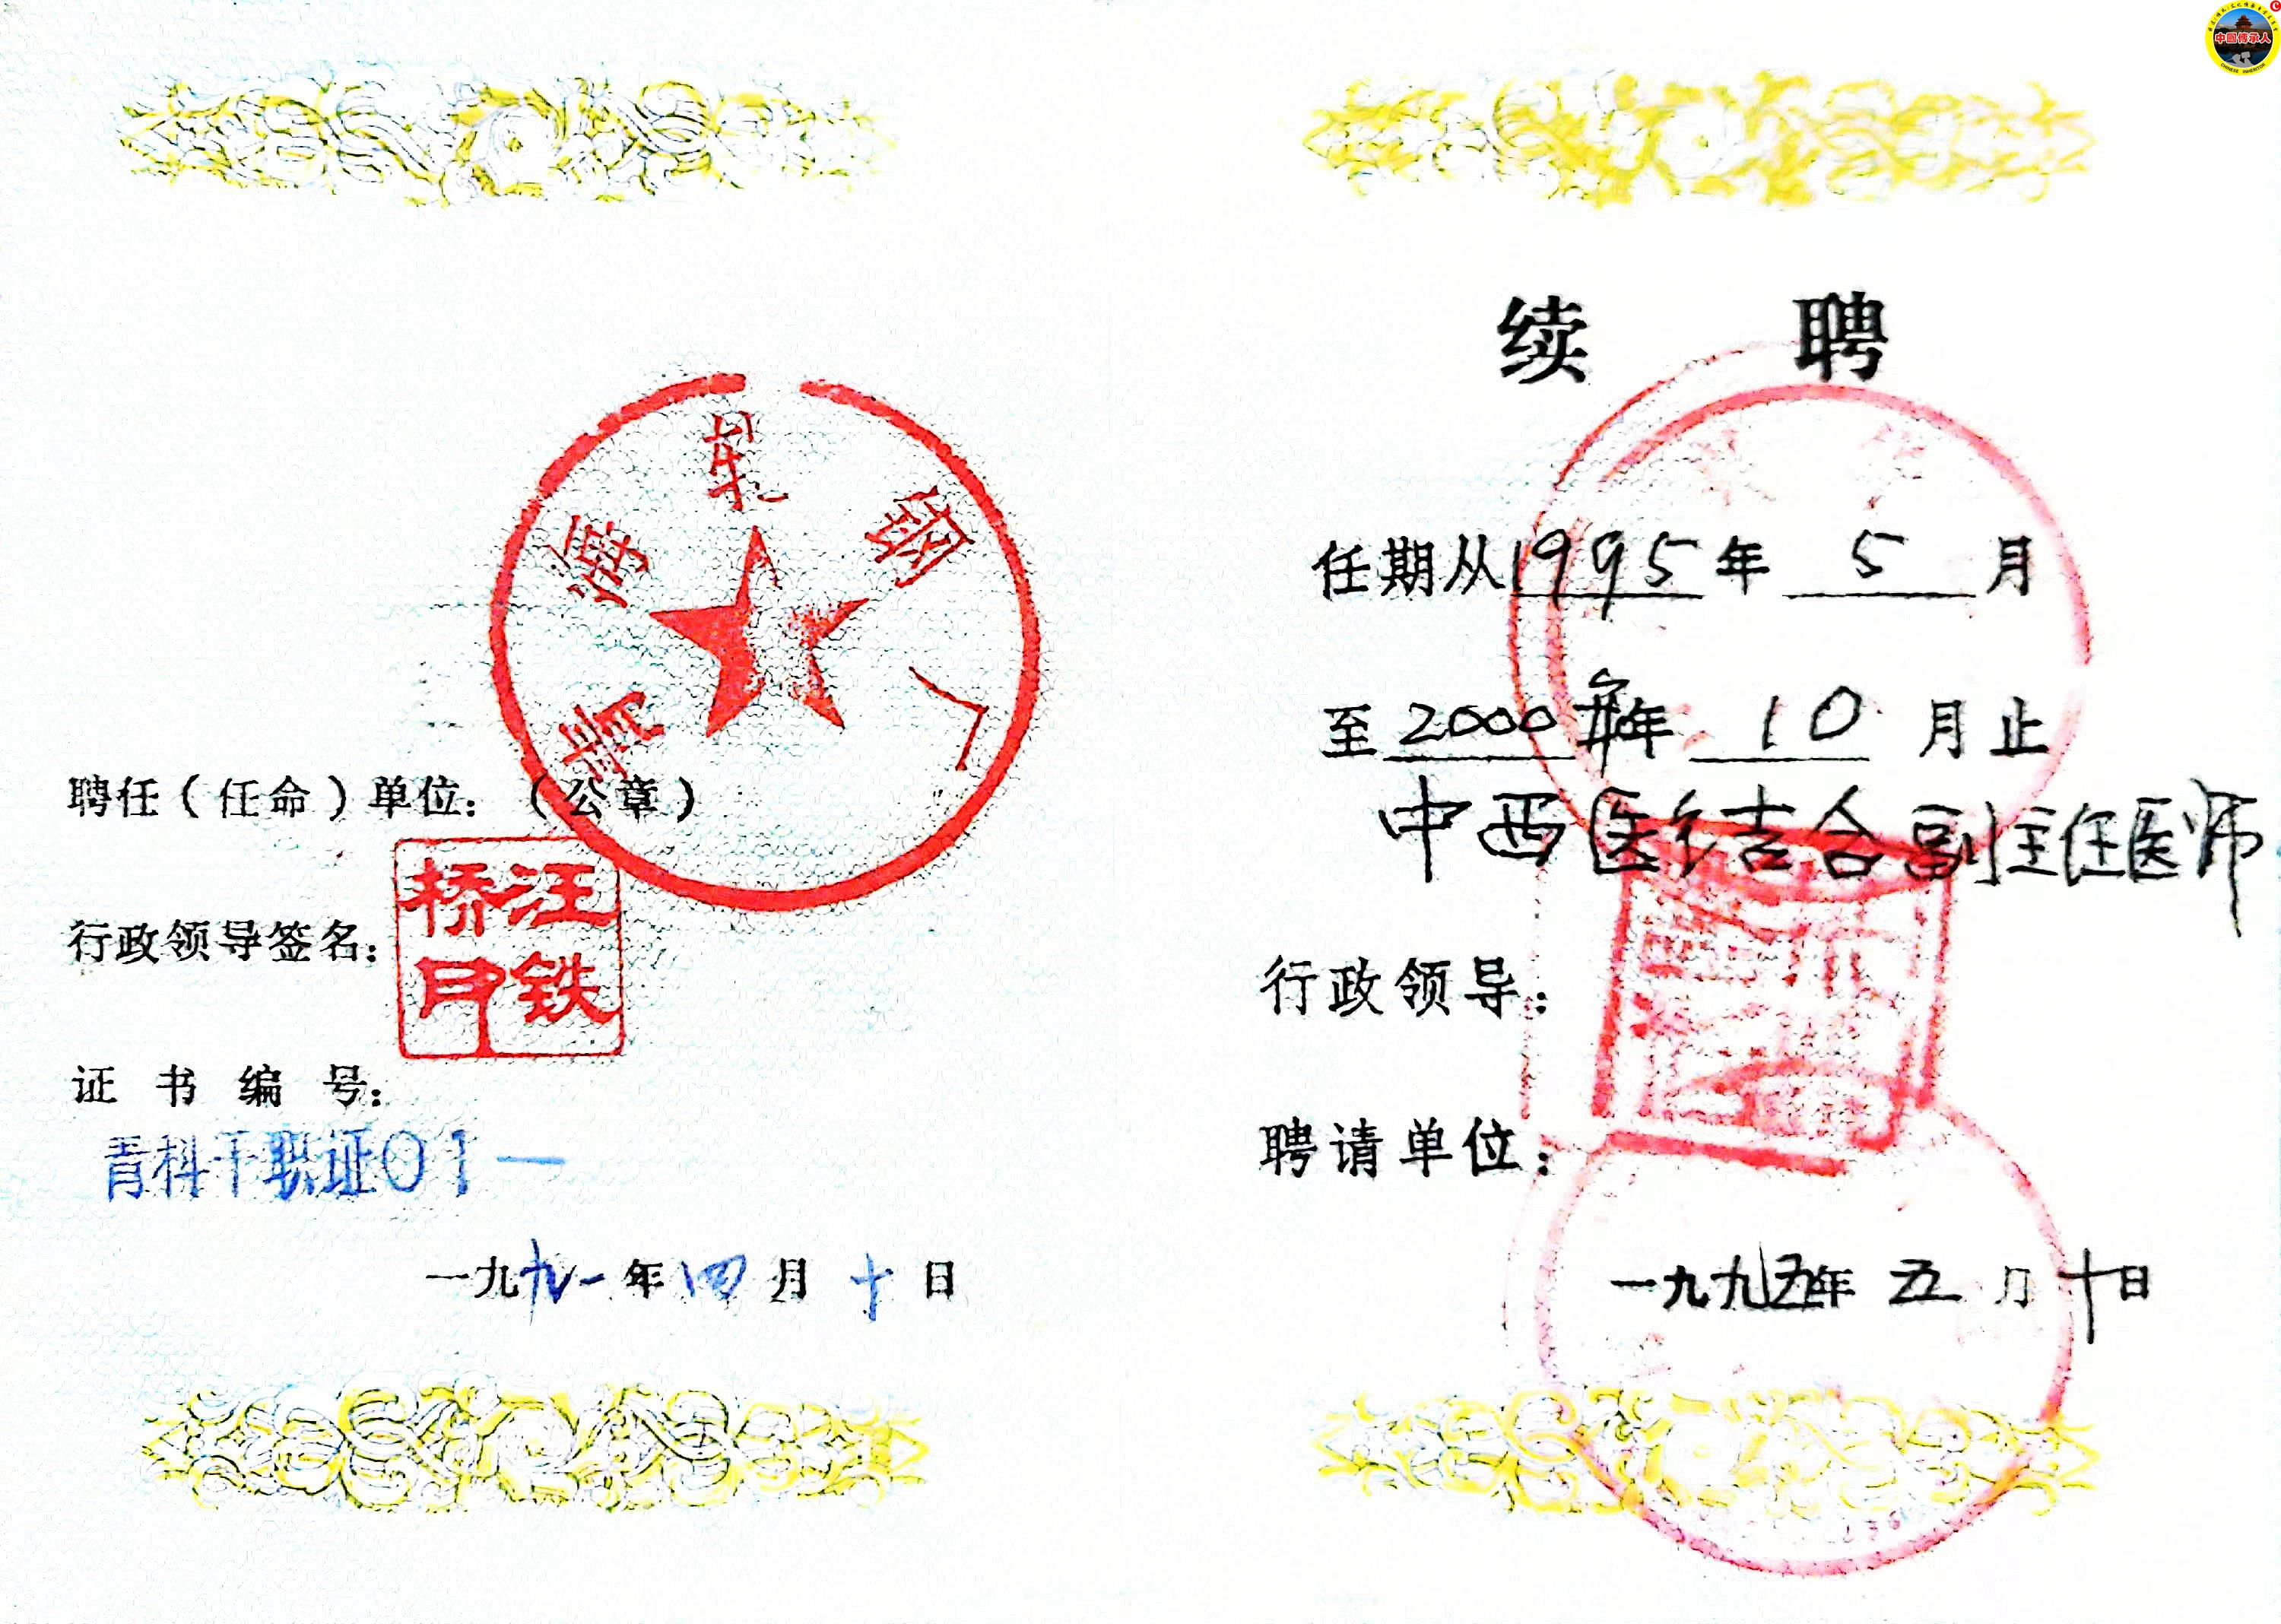 青海轧钢厂
聘任（任命）单位：（公章）
行政领导签名：
汪铁桥印
证书编号：
青科干职证01—
一九九一年四月十日
续聘
任期从1995年5月
至2000年年10月止
中西医结合副主任医师
行政领导：
聘请单位：
一九九五年五月十日
中国傳承人
CHINESE INHERITOR